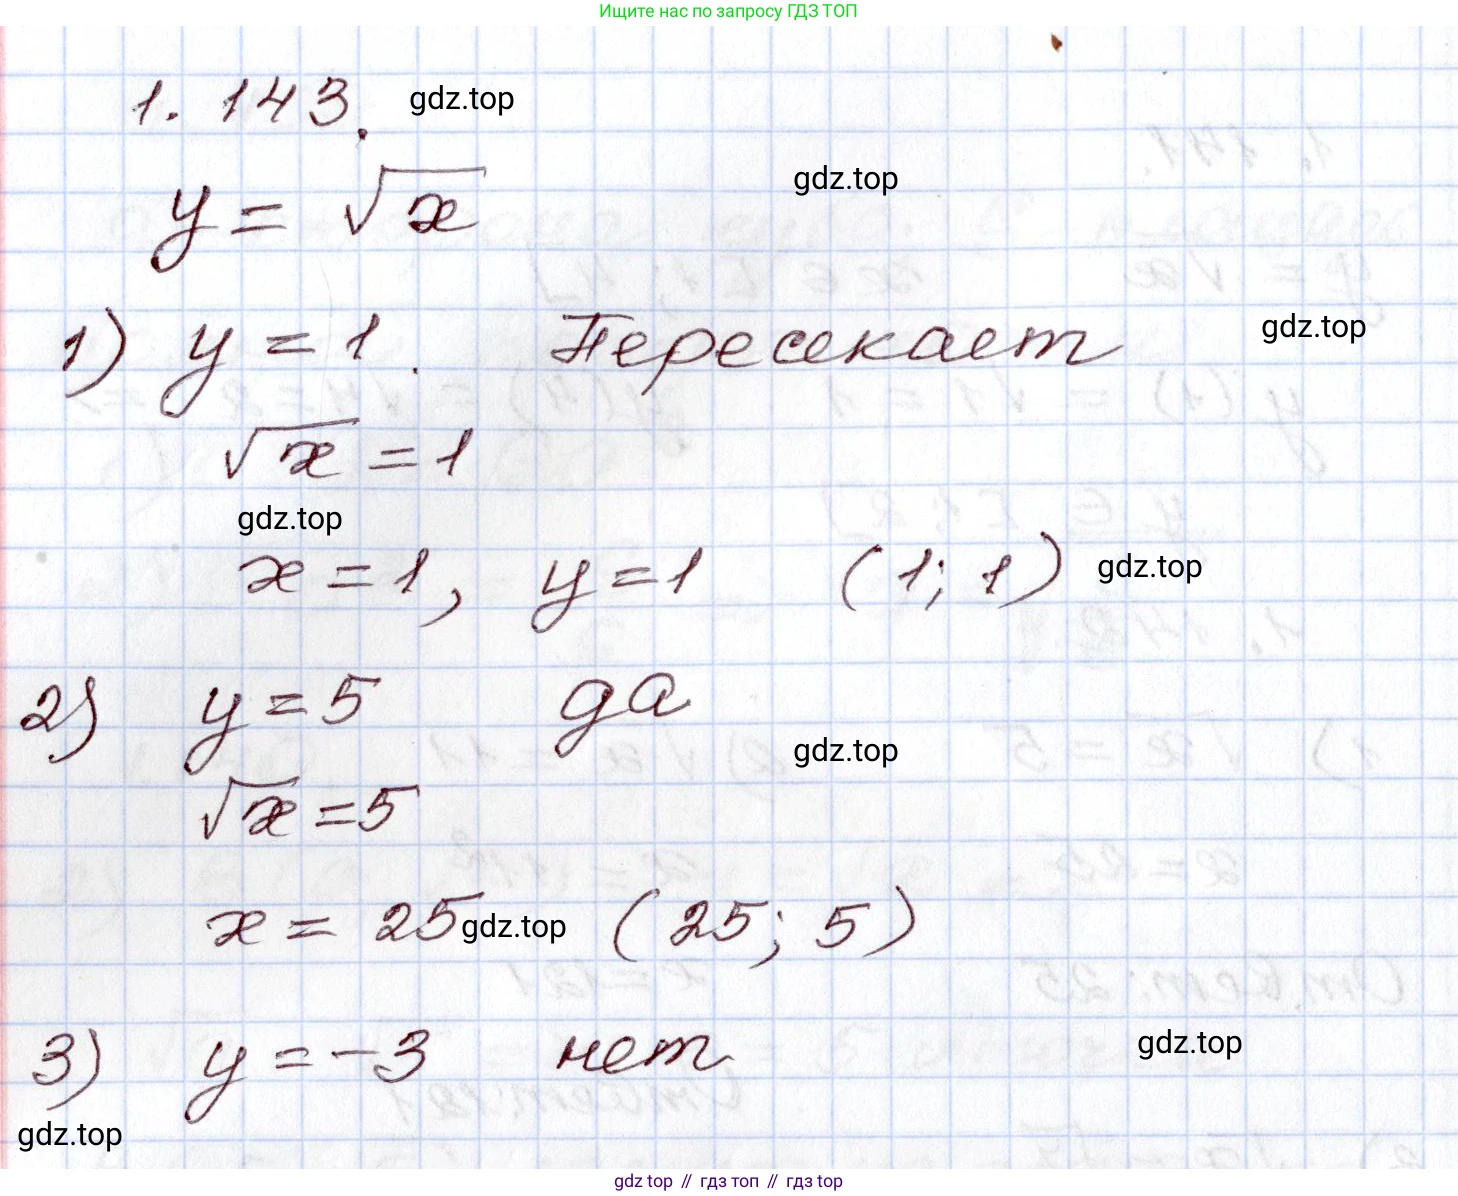 Ищите нас по запросу ГДЗ ТОП
1.143. gdz.top
y = √x gdz.top
1) y = 1. Пересекает gdz.top
√x = 1
gdz.top
x = 1, y = 1 (1; 1) gdz.top
2) y = 5 да
gdz.top
√x = 5
x = 25 gdz.top (25; 5)
3) y = -3 нет gdz.top
gdz.top
gdz top // гдз топ // гдз top